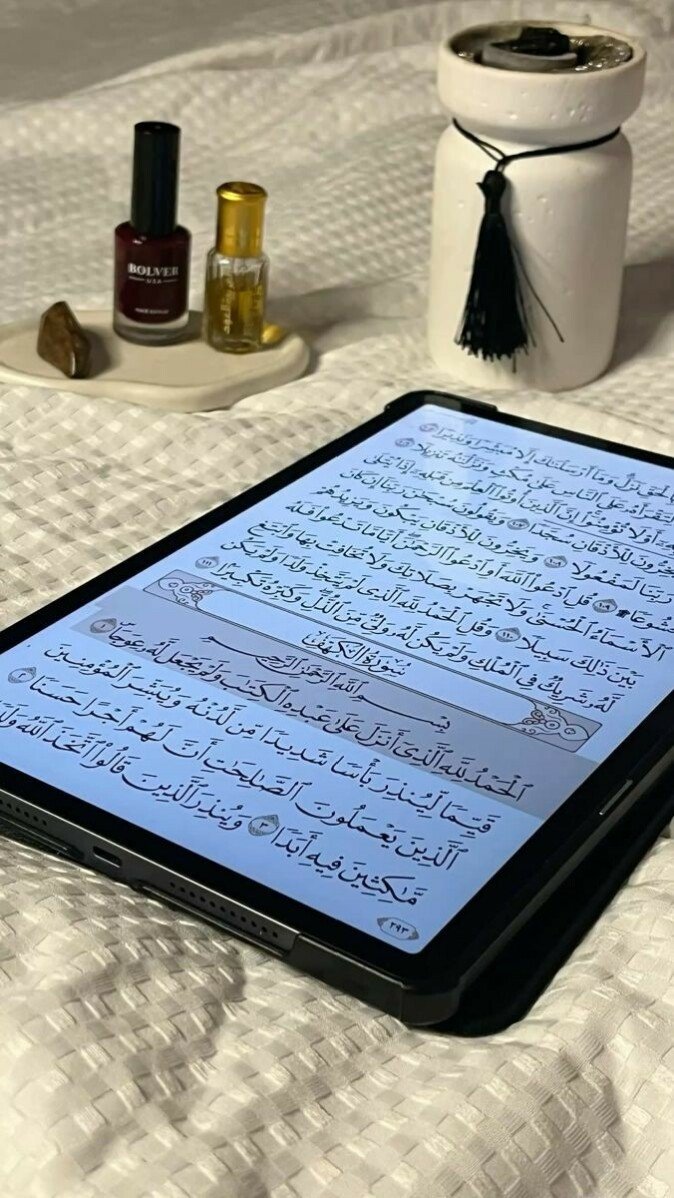 BOLVER
U.S.A
وَبِالْحَقِّ نَزَلَ وَمَا أَرْسَلْنَاكَ إِلَّا مُبَشِّرًا وَنَذِيرًا ١٠٥
لِتَقْرَأَهُ عَلَى النَّاسِ عَلَىٰ مُكْثٍ وَنَزَّلْنَاهُ تَنزِيلًا ١٠٦
أَوْ لَا تُؤْمِنُوا إِنَّ الَّذِينَ أُوتُوا الْعِلْمَ مِن قَبْلِهِ إِذَا يُتْلَىٰ
يَخِرُّونَ لِلْأَذْقَانِ سُجَّدًا ١٠٧ وَيَقُولُونَ سُبْحَانَ رَبِّنَا إِن كَانَ
رَبِّنَا لَمَفْعُولًا ١٠٨ وَيَخِرُّونَ لِلْأَذْقَانِ يَبْكُونَ وَيَزِيدُهُمْ
خُشُوعًا ۩ ١٠٩ قُلِ ادْعُوا اللَّهَ أَوِ ادْعُوا الرَّحْمَٰنَ أَيًّا مَّا تَدْعُوا فَلَهُ
الْأَسْمَاءُ الْحُسْنَىٰ وَلَا تَجْهَرْ بِصَلَاتِكَ وَلَا تُخَافِتْ بِهَا وَابْتَغِ
بَيْنَ ذَٰلِكَ سَبِيلًا ١١٠ وَقُلِ الْحَمْدُ لِلَّهِ الَّذِي لَمْ يَتَّخِذْ وَلَدًا وَلَمْ يَكُن
لَّهُ شَرِيكٌ فِي الْمُلْكِ وَلَمْ يَكُن لَّهُ وَلِيٌّ مِّنَ الذُّلِّ وَكَبِّرْهُ تَكْبِيرًا ١١١
سُورَةُ الْكَهْفِ
بِسْمِ اللَّهِ الرَّحْمَٰنِ الرَّحِيمِ
الْحَمْدُ لِلَّهِ الَّذِي أَنزَلَ عَلَىٰ عَبْدِهِ الْكِتَابَ وَلَمْ يَجْعَل لَّهُ عِوَجًا ۜ ١
قَيِّمًا لِّيُنذِرَ بَأْسًا شَدِيدًا مِّن لَّدُنْهُ وَيُبَشِّرَ الْمُؤْمِنِينَ
الَّذِينَ يَعْمَلُونَ الصَّالِحَاتِ أَنَّ لَهُمْ أَجْرًا حَسَنًا ٢
مَّاكِثِينَ فِيهِ أَبَدًا ٣ وَيُنذِرَ الَّذِينَ قَالُوا اتَّخَذَ اللَّهُ وَلَدًا
٢٩٣